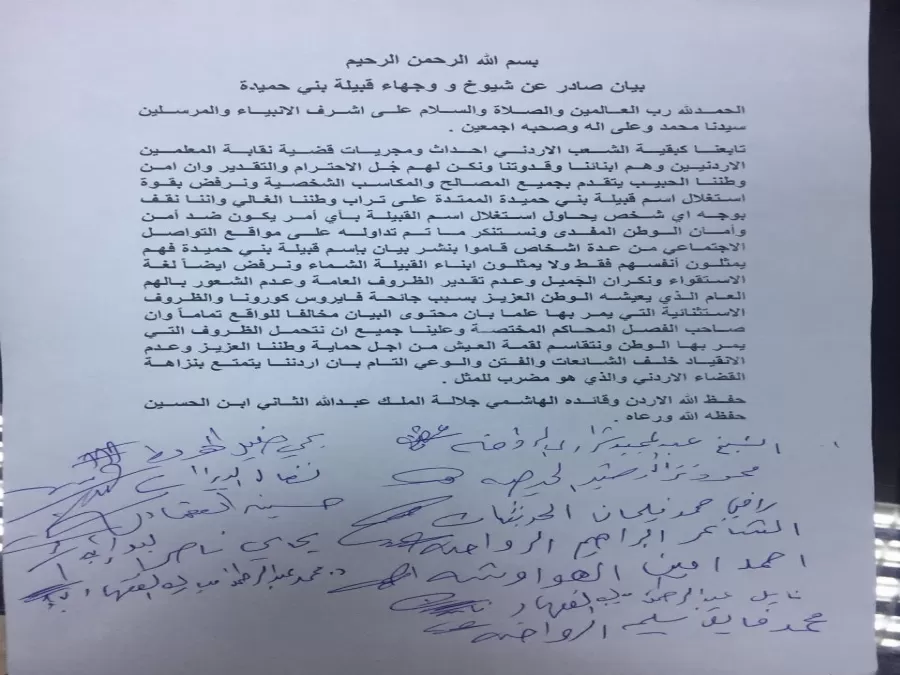 بسم الله الرحمن الرحيم
بيان صادر عن شيوخ و وجهاء قبيلة بني حميدة
الحمدلله رب العالمين والصلاة والسلام على اشرف الانبياء والمرسلين
سيدنا محمد وعلى اله وصحبه اجمعين .
تابعنا كبقية الشعب الاردني احداث ومجريات قضية نقابة المعلمين
الاردنيين وهم ابنائنا وقدوتنا ونكن لهم جُل الاحترام والتقدير وان امن
وطننا الحبيب يتقدم بجميع المصالح والمكاسب الشخصية ونرفض بقوة
استغلال اسم قبيلة بني حميدة الممتدة على تراب وطننا الغالي واننا نقف
بوجه اي شخص يحاول استغلال اسم القبيلة بأي أمر يكون ضد أمن
وأمان الوطن المفدى ونستنكر ما تم تداوله على مواقع التواصل
الاجتماعي من عدة اشخاص قاموا بنشر بيان بإسم قبيلة بني حميدة فهم
يمثلون أنفسهم فقط ولا يمثلون ابناء القبيلة الشماء ونرفض ايضاً لغة
الاستقواء ونكران الجَميل وعدم تقدير الظروف العامة وعدم الشعور بالهم
العام الذي يعيشه الوطن العزيز بسبب جائحة فايروس كورونا والظروف
الاستثنائية التي يمر بها علما بان محتوى البيان مخالفا للواقع تماماً وان
صاحب الفصل المحاكم المختصة وعلينا جميع ان نتحمل الظروف التي
يمر بها الوطن ونتقاسم لقمة العيش من اجل حماية وطننا العزيز وعدم
الانقياد خلف الشائعات والفتن والوعي التام بان اردننا يتمتع بنزاهة
القضاء الاردني والذي هو مضرب للمثل .
حفظ الله الاردن وقائده الهاشمي جلالة الملك عبدالله الثاني ابن الحسين
حفظه الله ورعاه .
الشيخ عبدالمجيد الرواحنه
محمود
رافي حمد فليحان الحريثات
الشاعر ابراهيم الرواحنه
احمد امين الهواوشه
نايل عبدالرحمن الفقهاء
محمد فايق سليم الرواحنه
يحيى
نضال
حسين الفقهاء
يحيى ناصر
د. محمد عبدالرحمن الفقهاء